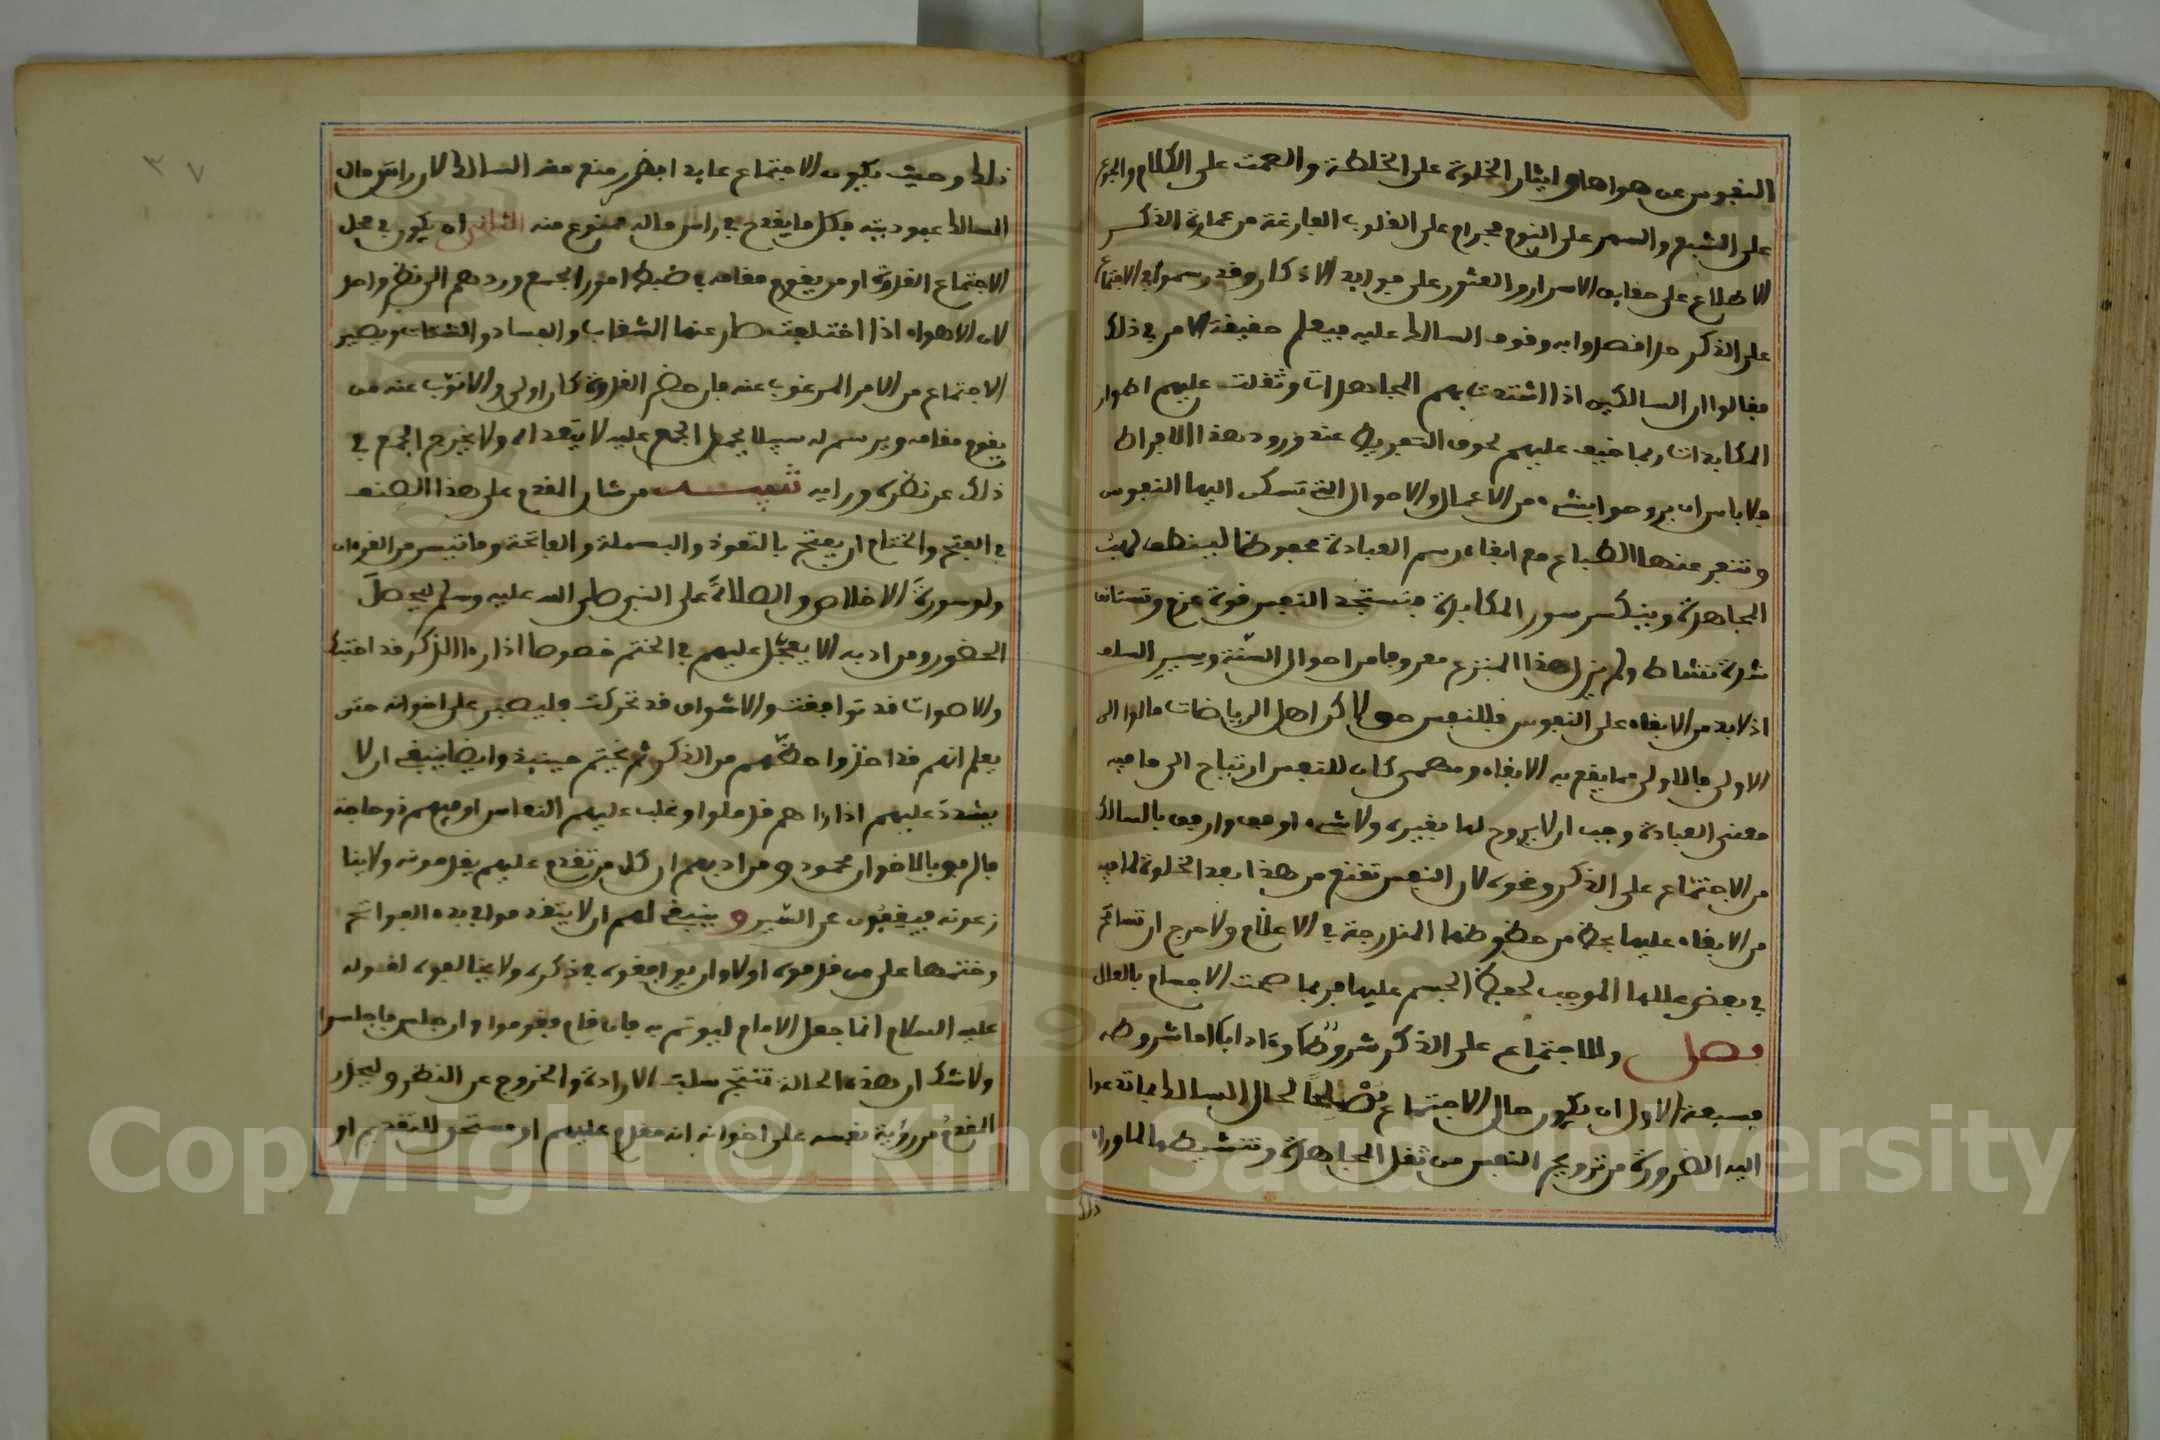 النفوس عن هواها وايثار الخلوة على الخلطة والصمت على الكلام والجوع
على الشبع والسهر على النوم فحرام على القلوب الفارغة من عمارة الذكر
الاطلاع على حقايق الاسرار والعثور على فوايد الاذكار وقد رسموا في الاجتماع
على الذكر حدا قصدوا به وقوف السالك عليه فيعلم حقيقة الامر في ذلك
فقالوا ان السالكين اذا اشتدت بهم المجاهدات وثقلت عليهم اطوار
المكابدات ربما خيف عليهم لحوق التفريط عند ورود هذا الافراط
فلا باس ان يروحوا بشيء من الاعمال والاحوال التي تسكن اليها النفوس
وتنفر عنها الطباع مع ابقاء رسم العبادة محفوظا لينطفي لهيب
المجاهدة وينكسر سور المكابدة فتستجد النفس قوة عزم وتستانف
شدة نشاط ولم يزل هذا المنزع معروفا من احوال السنة وسير السلف
اذ لا بد من الابقاء على النفوس فللنفس حق لاكن اهل الرياضات مالوا الى
الاولى فالاولى مما يقع به الابقاء ومهمى كان للنفس ارتياح الى ما فيه
معنى العبادة وجب ان لا يروح لها بغيره ولا شيء اوفق وارفق بالسالك
من الاجتماع على الذكر ونحوه لان النفس تقنع من هذا بعد الخلوة لما فيه
من الابقاء عليها بحظ من حظوظها المندرجة في الاعلام ولا حرج ان تسامح
في بعض عللها الموجب لحفظ الجسم عليها فربما صحت الاجسام بالعلل
فصل وللاجتماع على الذكر شروطا وءادابا اما شروطه
فسبعة الاول ان يكون حال الاجتماع مصلحا لحال السالك فيما تدعوا
اليه الضرورة من ترويح النفس من ثقل المجاهدة وتنشيطها لما وراء
ذلك
ذلك وحيث يكون الاجتماع عايدا بضرر منع منه السالك لان راس مال
السالك عبوديته فكل ما يقدح في راس ماله ممنوع منه الثاني ان يكون في محل
الاجتماع القدوة او من يقوم مقامه في ضبط امور الجمع وردهم الى نظر واحد
لان الاهواء اذا اختلفت طار عنها الشقاق والفساد والشتات ويصير
الاجتماع من الامر المرغوب عنه فان حضر القدوة كان اولى والا نوب عنه من
يقوم مقامه ويرسم له سبيلا يحمل الجمع عليه لا يتعداه ولا يخرج الجمع في
ذلك عن نظره ورايه تنبيه من شان المقدم على هذا الصنف
في الفتح والختام ان يفتح بالتعوذ والبسملة والفاتحة وما تيسر من القرءان
ولو سورة الاخلاص والصلاة على النبي صلى الله عليه وسلم ليحصل
الحضور ومن ادبه الا يعجل عليهم في الختم خصوصا اذا رءا الذكر قد احتبك
والاصوات قد توافقت والاشواق قد تحركت فليصبر على اخوانه حتى
يعلم انهم قد اخذوا حظهم من الذكر ثم يختم حينيذ وايضا ينبغي ان لا
يشدد عليهم اذا راهم قد ملوا او غلب عليهم النعاس او فيهم ذو حاجة
فالرفق بالاخوان محمود ومن ادبهم ان كل من تقدم عليهم يقدمونه ولا ينا
زعونه فيقفون عن السير وينبغي لهم ان لا يتقدموا في بدء الفواتح
وختمها على من قدموه اولا وان يوافقوه في ذكره ولا يخالفوه لقوله
عليه السلام انما جعل الامام ليوتم به فان قام فقوموا وان جلس فاجلسوا
ولا شك ان هذه الحالة تنتج سلب الارادة والخروج عن النظر وليحذر
المقدم من رؤية نفسه على اخوانه انه مقدم عليهم او مستحق للتقديم او
٣٧
Copyright © King Saud University